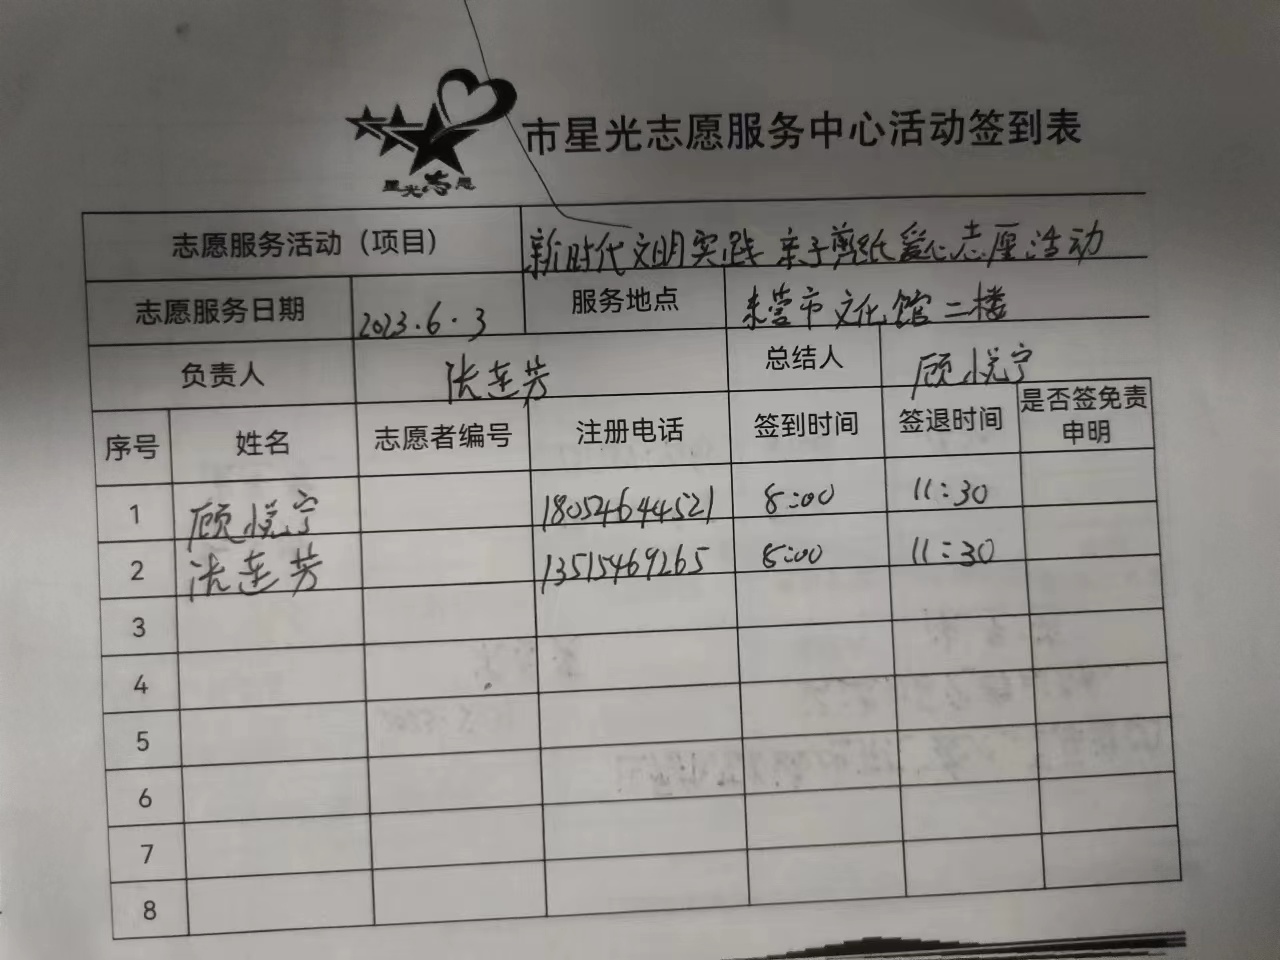 星光志愿
市星光志愿服务中心活动签到表
志愿服务活动（项目） 新时代文明实践亲子剪纸爱心志愿活动
志愿服务日期 2023.6.3 服务地点 东营市文化馆二楼
负责人 张莲芳 总结人 顾悦宁
序号 姓名 志愿者编号 注册电话 签到时间 签退时间 是否签免责申明
1 顾悦宁 18054644521 8:00 11:30
2 张莲芳 13515469265 8:00 11:30
3
4
5
6
7
8